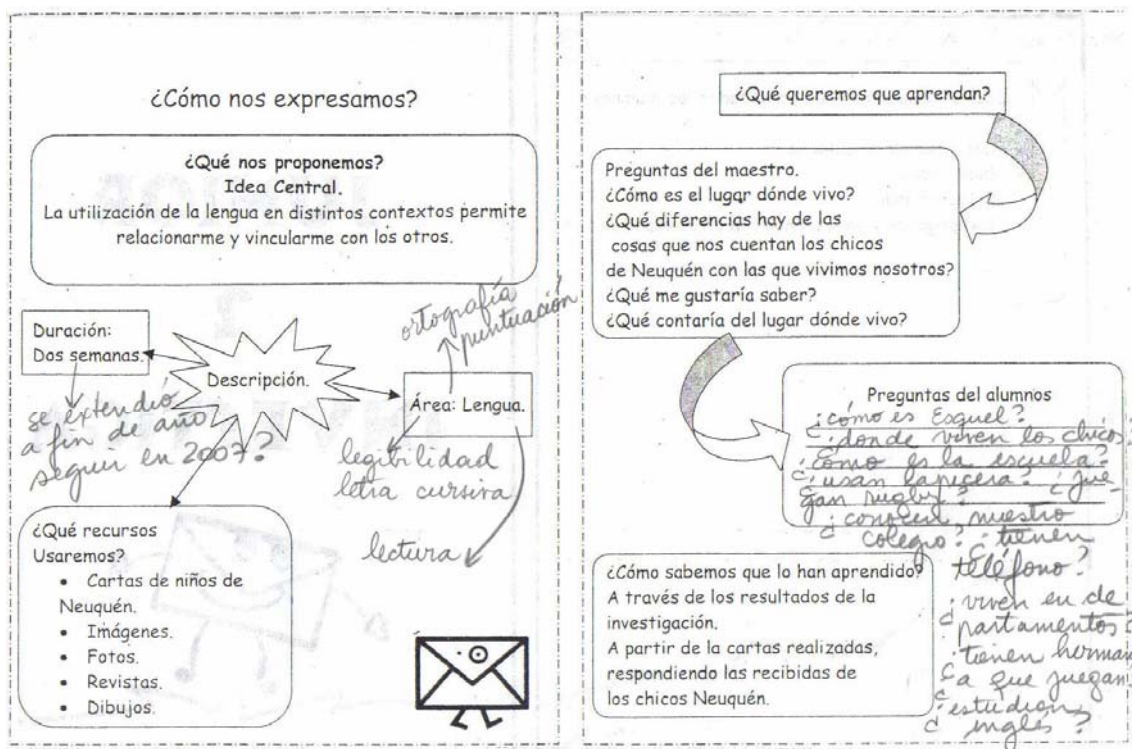 ¿Cómo nos expresamos?
¿Qué nos proponemos?
Idea Central.
La utilización de la lengua en distintos contextos permite
relacionarme y vincularme con los otros.
Duración:
Dos semanas.
se extendió
a fin de año
seguir en 2007?
Descripción.
Área: Lengua.
ortografía
puntuación
legibilidad
letra cursiva
lectura
¿Qué recursos
Usaremos?
• Cartas de niños de
Neuquén.
• Imágenes.
• Fotos.
• Revistas.
• Dibujos.
¿Qué queremos que aprendan?
Preguntas del maestro.
¿Cómo es el lugar dónde vivo?
¿Qué diferencias hay de las
cosas que nos cuentan los chicos
de Neuquén con las que vivimos nosotros?
¿Qué me gustaría saber?
¿Qué contaría del lugar dónde vivo?
Preguntas del alumnos
¿cómo es Esquel?
¿donde viven los chicos?
¿cómo es la escuela?
¿usan lapicera? ¿jue-
gan rugby?
¿conocen nuestro
colegio? ¿tienen
teléfono?
¿viven en de
partamentos?
¿tienen herman
¿a que juegan
¿estudian
inglés?
¿Cómo sabemos que lo han aprendido?
A través de los resultados de la
investigación.
A partir de la cartas realizadas,
respondiendo las recibidas de
los chicos Neuquén.